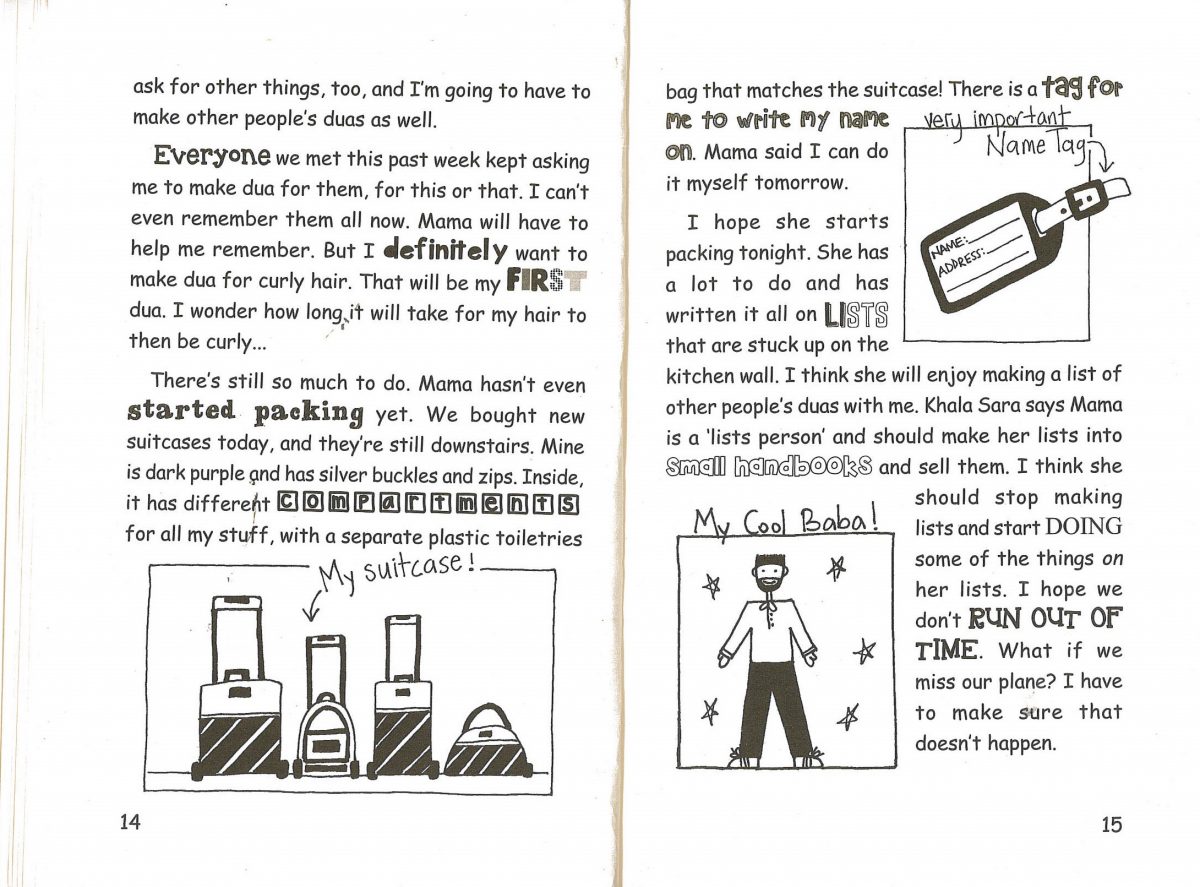 ask for other things, too, and I'm going to have to
make other people's duas as well.
Everyone we met this past week kept asking
me to make dua for them, for this or that. I can't
even remember them all now. Mama will have to
help me remember. But I definitely want to
make dua for curly hair. That will be my FIRST
dua. I wonder how long it will take for my hair to
then be curly...
There's still so much to do. Mama hasn't even
started packing yet. We bought new
suitcases today, and they're still downstairs. Mine
is dark purple and has silver buckles and zips. Inside,
it has different compartments
for all my stuff, with a separate plastic toiletries
My suitcase!
14
bag that matches the suitcase! There is a tag for
me to write my name
on. Mama said I can do
it myself tomorrow.
very important
Name Tag
NAME:
ADDRESS:
I hope she starts
packing tonight. She has
a lot to do and has
written it all on LISTS
that are stuck up on the
kitchen wall. I think she will enjoy making a list of
other people's duas with me. Khala Sara says Mama
is a 'lists person' and should make her lists into
small handbooks and sell them. I think she
should stop making
lists and start DOING
some of the things on
her lists. I hope we
don't RUN OUT OF
TIME. What if we
miss our plane? I have
to make sure that
doesn't happen.
My Cool Baba!
15